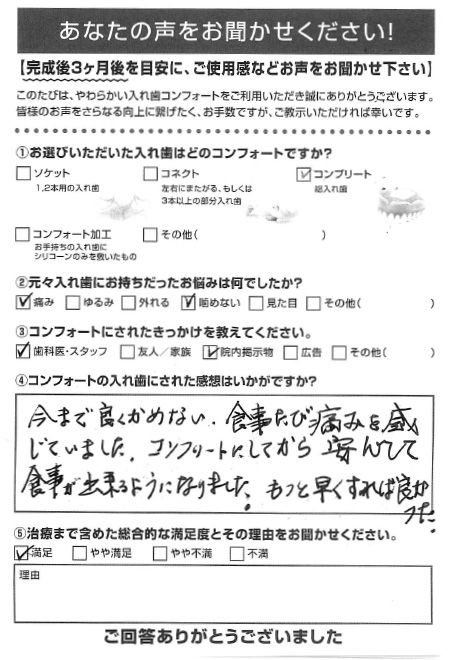 あなたの声をお聞かせください!
【完成後3ヶ月後を目安に、ご使用感などお声をお聞かせ下さい】
このたびは、やわらかい入れ歯コンフォートをご利用いただき誠にありがとうございます。
皆様のお声をさらなる向上に繋げたく、お手数ですが、ご教示いただければ幸いです。
①お選びいただいた入れ歯はどのコンフォートですか?
□ソケット □コネクト ☑コンプリート
1,2本用の入れ歯 左右にまたがる、もしくは 総入れ歯
3本以上の部分入れ歯
□コンフォート加工 □その他( )
お手持ちの入れ歯に
シリコーンのみを敷いたもの
②元々入れ歯にお持ちだったお悩みは何でしたか?
☑痛み □ゆるみ □外れる ☑噛めない □見た目 □その他( )
③コンフォートにされたきっかけを教えてください。
☑歯科医・スタッフ □友人/家族 ☑院内掲示物 □広告 □その他( )
④コンフォートの入れ歯にされた感想はいかがですか?
今まで良くかめない、食事たび痛みを感
じていました。コンフリートにしてから安んして
食事が出来るようになりました。もっと早くすれば良か
った。
⑤治療まで含めた総合的な満足度とその理由をお聞かせください。
☑満足 □やや満足 □やや不満 □不満
理由
ご回答ありがとうございました